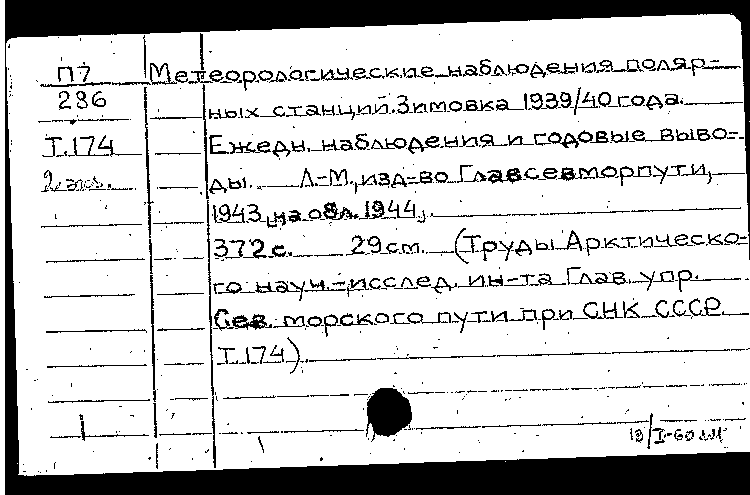 П7
286
Т.174
2 экз.
Метеорологические наблюдения поляр-
ных станций. Зимовка 1939/40 года.
Ежедн. наблюдения и годовые выво-
ды. Л.-М., изд-во Главсевморпути,
1943, на обл. 1944,.
372 с. 29 см. (Труды Арктическо-
го науч.-исслед. ин-та Глав. упр.
Сев. морского пути при СНК СССР.
Т.174).
19/I-60